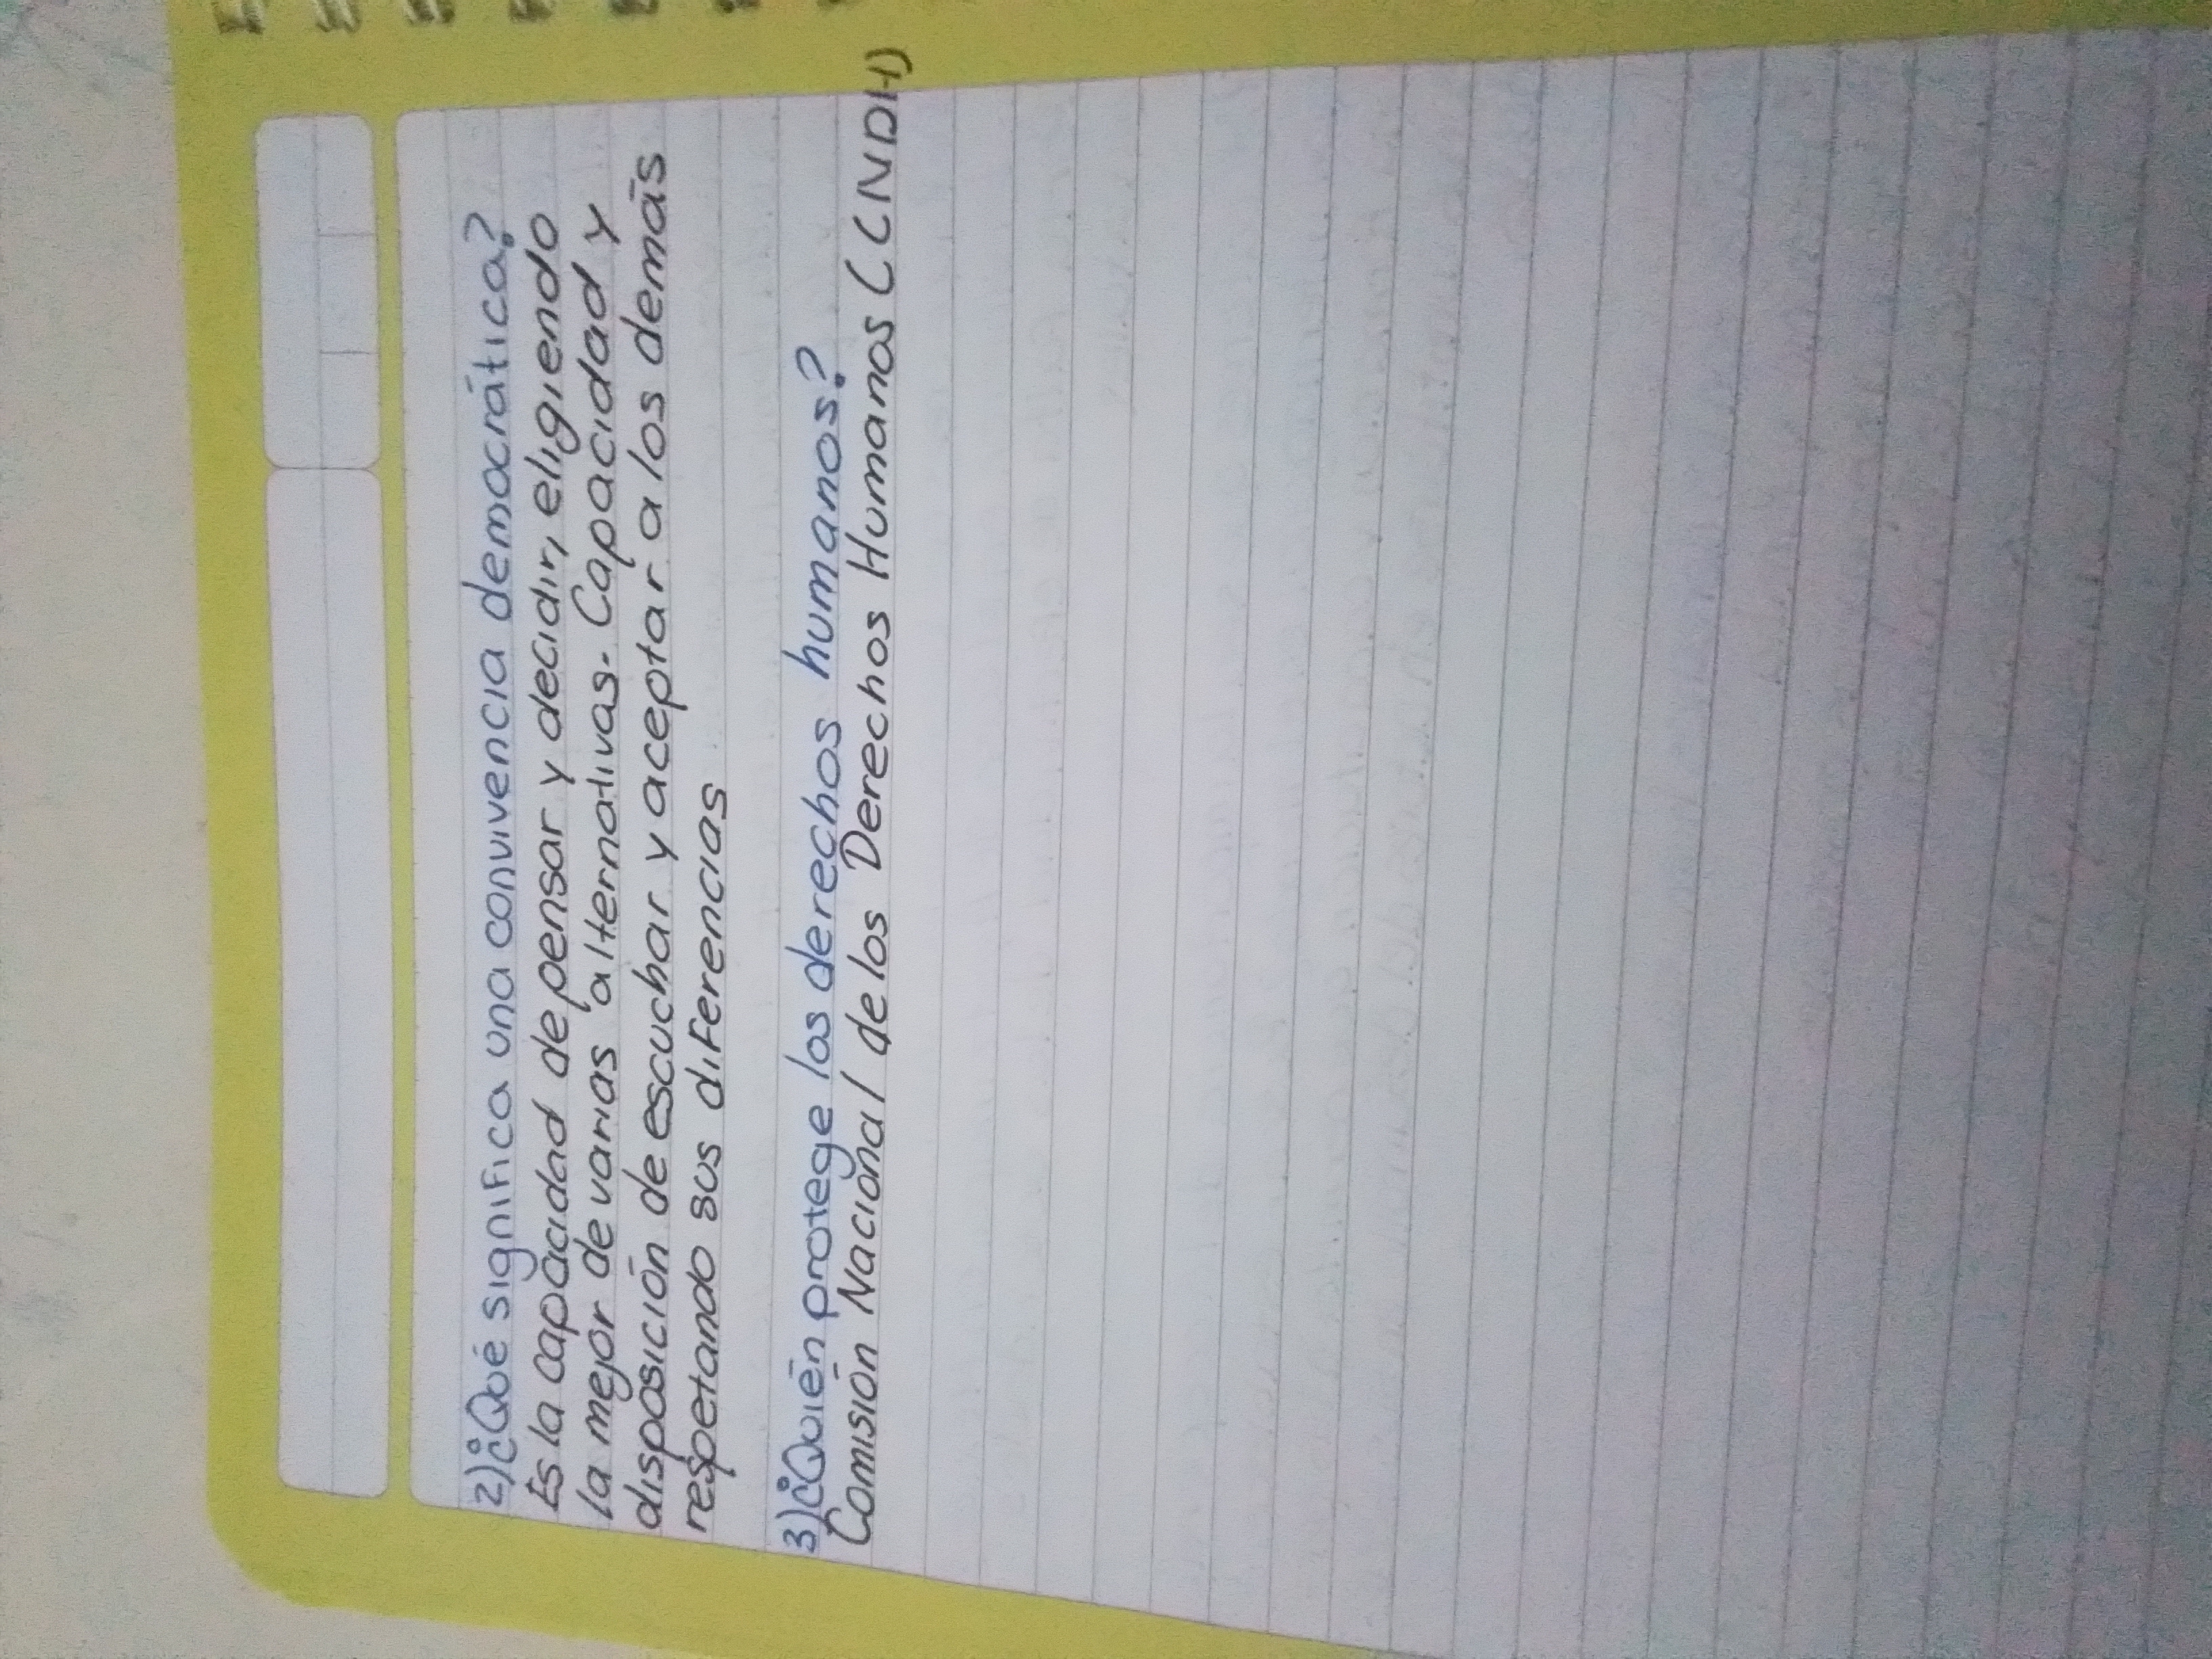 2)¿Qué significa una convivencia democrática?
Es la capacidad de pensar y decidir, eligiendo
la mejor de varias alternativas. Capacidad y
disposición de escuchar y aceptar a los demás
respetando sus diferencias
3)¿Quién protege los derechos humanos?
Comisión Nacional de los Derechos Humanos (CNDH)